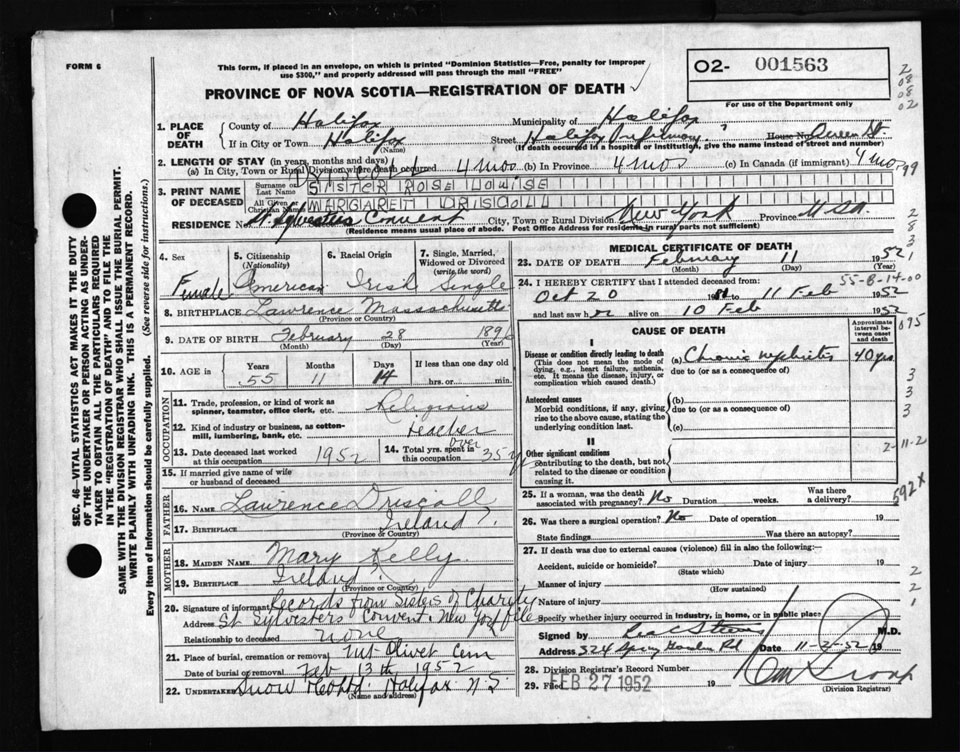 FORM 6
This form, if placed in an envelope, on which is printed "Dominion Statistics—Free, penalty for improper
use $300," and properly addressed will pass through the mail "FREE"
PROVINCE OF NOVA SCOTIA—REGISTRATION OF DEATH
O2- 001563
For use of the Department only
1. PLACE OF DEATH
County of Halifax Municipality of Halifax
If in City or Town Halifax (Name) Street Halifax Infirmary House No. Queen St.
(If death occurred in hospital or institution, give the name instead of street and number)
2. LENGTH OF STAY (in years, months and days)
(a) In City, Town or Rural Division where death occurred 4 mos (b) In Province 4 mos (c) In Canada (if immigrant) 4 mos
3. PRINT NAME OF DECEASED
Surname or Last Name SISTER ROSE LOUISE
All Given or Christian Names MARGARET DRISCOLL
RESIDENCE No. St Sylvesters Convent City, Town or Rural Division New York Province USA.
(Residence means usual place of abode. Post Office Address for residence in rural parts not sufficient)
4. Sex Female
5. Citizenship (Nationality) American
6. Racial Origin Irish
7. Single, Married, Widowed or Divorced (write the word) Single
8. BIRTHPLACE Lawrence Massachusetts
(Province or Country)
9. DATE OF BIRTH February 28 1896
(Month) (Day) (Year)
10. AGE in Years 55 Months 11 Days 14 If less than one day old
hrs. or min.
OCCUPATION
11. Trade, profession, or kind of work as spinner, teamster, office clerk, etc. Religious
12. Kind of industry or business, as cotton-mill, lumbering, bank, etc. teacher
13. Date deceased last worked at this occupation 1952
14. Total yrs. spent in this occupation Over 35 y
15. If married give name of wife or husband of deceased
FATHER
16. NAME Lawrence Driscoll
17. BIRTHPLACE Ireland
(Province or Country)
MOTHER
18. MAIDEN NAME Mary Kelly
19. BIRTHPLACE Ireland
(Province or Country)
20. Signature of informant Records from Sisters of Charity
Address St Sylvesters Convent. New York file
Relationship to deceased none
21. Place of burial, cremation or removal Mt Olivet Cem
Date of burial or removal Feb 13th 1952
22. UNDERTAKER Snow Halifax N.S.
(Name and address)
MEDICAL CERTIFICATE OF DEATH
23. DATE OF DEATH February 11 1952
(Month) (Day) (Year)
24. I HEREBY CERTIFY that I attended deceased from:
Oct 20 1951 to 11 Feb 1952
and last saw her alive on 10 Feb 1952
CAUSE OF DEATH
Approximate interval between onset and death
I
Disease or condition directly leading to death
(This does not mean the mode of dying, e.g., heart failure, asthenia, etc. It means the disease, injury, or complication which caused death.)
(a) Chronic nephritis 40 yrs
due to (or as a consequence of)
Antecedent causes
Morbid conditions, if any, giving rise to the above cause, stating the underlying condition last.
(b)
due to (or as a consequence of)
(c)
II
Other significant conditions
contributing to the death, but not related to the disease or condition causing it.
25. If a woman, was the death associated with pregnancy? No Duration weeks. Was there a delivery?
26. Was there a surgical operation? No Date of operation 19
State findings Was there an autopsy?
27. If death was due to external causes (violence) fill in also the following:—
Accident, suicide or homicide? Date of injury 19
(State which)
Manner of injury
(How sustained)
Nature of injury
Specify whether injury occurred in industry, in home, or in public place
Signed by M.D.
Address 324 Spring Garden Rd Date 11-2-52 19
28. Division Registrar's Record Number
29. Filed FEB 27 1952 19
(Division Registrar)
55-8-14-00
2-11-2
592X
SEC. 46—VITAL STATISTICS ACT MAKES IT THE DUTY
OF THE UNDERTAKER OR PERSON ACTING AS UNDER-
TAKER TO OBTAIN ALL THE PARTICULARS REQUIRED
IN THE "REGISTRATION OF DEATH" AND TO FILE THE
SAME WITH THE DIVISION REGISTRAR WHO SHALL ISSUE THE BURIAL PERMIT.
WRITE PLAINLY WITH UNFADING INK. THIS IS A PERMANENT RECORD.
Every item of information should be carefully supplied. (See reverse side for instructions.)